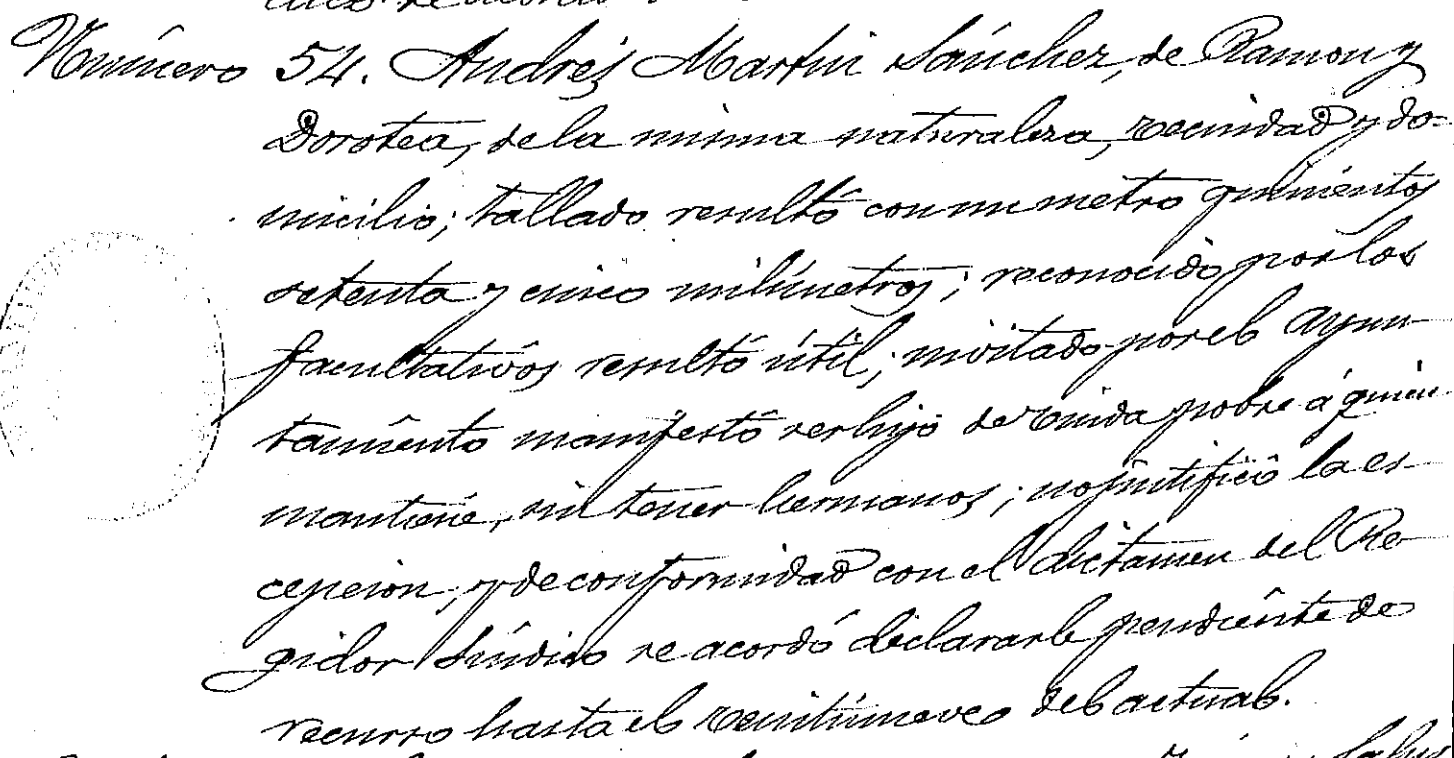 Número 54. Andrés Martin Sánchez, de Ramon y
Dorotea, de la misma naturaleza, vecindad y do=
micilio; tallado resultó con un metro quinientos
setenta y cinco milímetros; reconocido por los
facultativos resultó útil; invitado por el Ayun-
tamiento manifestó ser hijo de viuda pobre á quien
mantiene, sin tener hermanos; no justificó la es-
cepcion, y de conformidad con el dictamen del Re-
gidor Síndico se acordó declararle pendiente de
recurso hasta el veintinueve del actual.